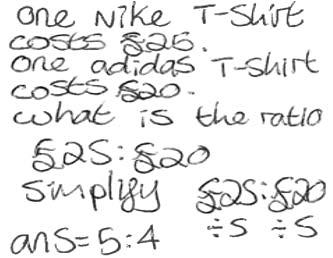 one Nike T-Shirt
costs £25.
one adidas T-Shirt
costs £20.
what is the ratio
£25:£20
simplify £25:£20
÷5 ÷5
ans=5:4